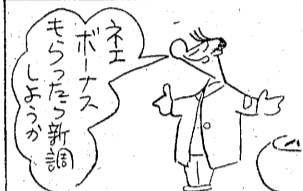 ネエ
ボーナス
もらったら新調
しようか